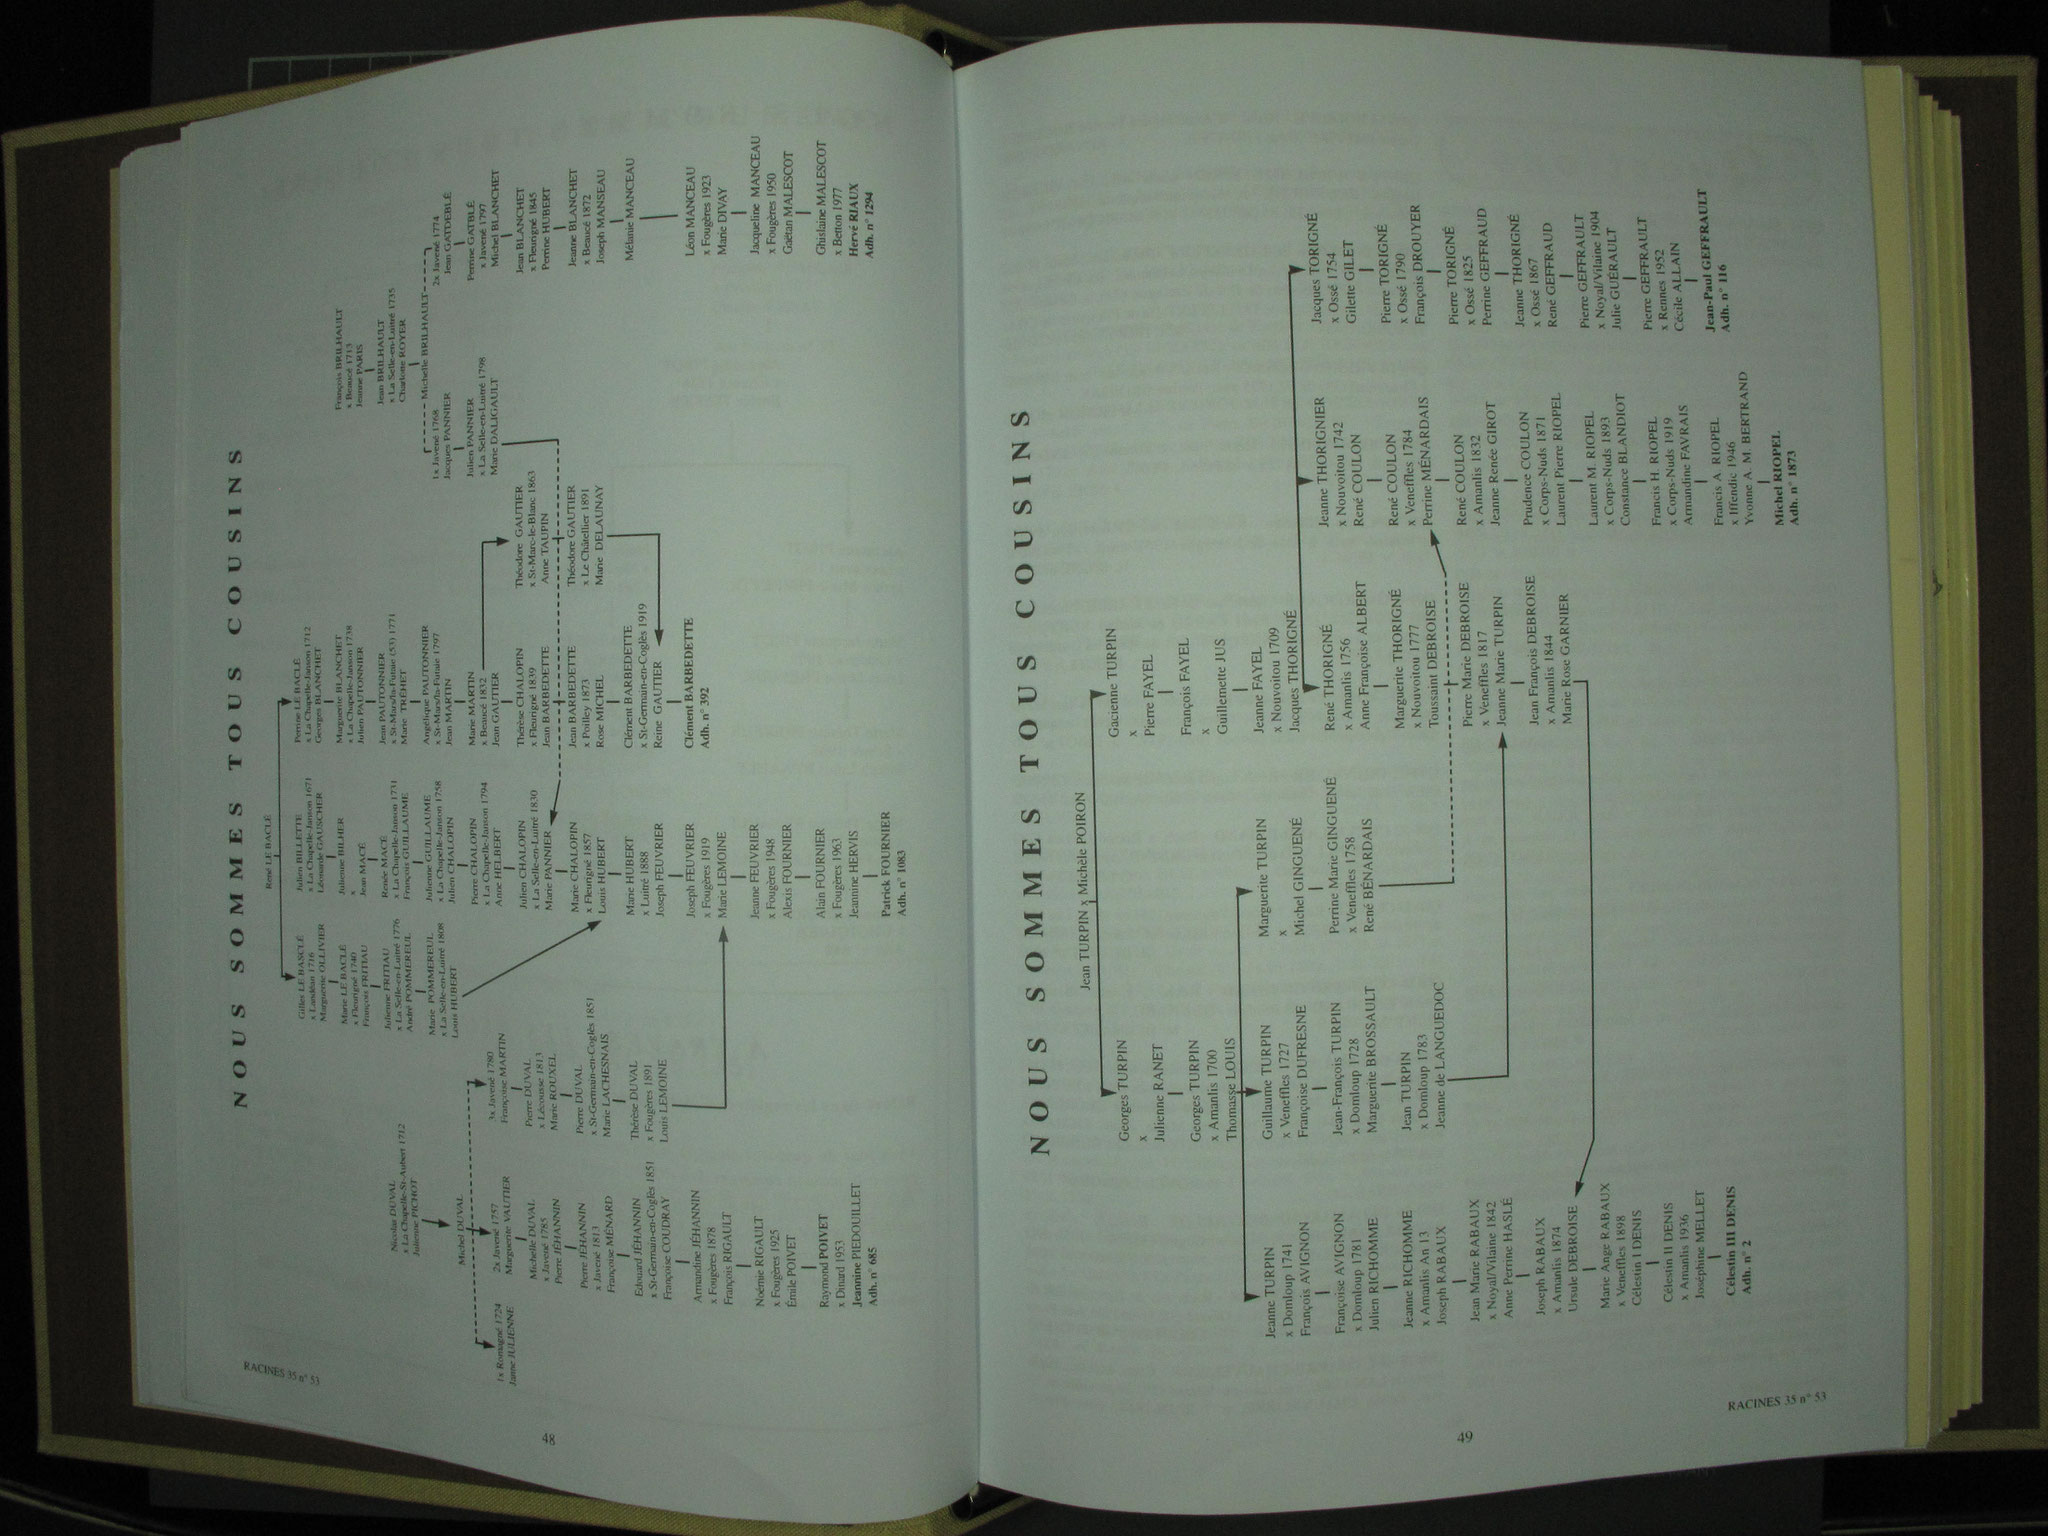 RACINES 35 n° 53
NOUS SOMMES TOUS COUSINS
Nicolas DUVAL
x La Chapelle-St-Aubert 1712
Julienne PICHOT
Michel DUVAL
1x Romagné 1724
Janne JULIENNE
2x Javené 1757
Marguerite VAUTIER
Michelle DUVAL
x Javené 1785
Pierre JÉHANNIN
Pierre JÉHANNIN
x Javené 1813
Françoise MÉNARD
Edouard JÉHANNIN
x St-Germain-en-Coglès 1851
Françoise COUDRAY
Armandine JÉHANNIN
x Fougères 1878
François RIGAULT
Noémie RIGAULT
x Fougères 1925
Émile POIVET
Raymond POIVET
x Dinard 1953
Jeannine PIEDOUILLET
Adh. n° 685
3x Javené 1780
Françoise MARTIN
Pierre DUVAL
x Lécousse 1813
Marie ROUXEL
Pierre DUVAL
x St-Germain-en-Coglès 1851
Marie LACHESNAIS
Thérèse DUVAL
x Fougères 1891
Louis LEMOINE
René LE BACLÉ
Gilles LE BASCLÉ
x Landéan 1716
Marguerite OLLIVIER
Marie LE BACLÉ
x Fleurigné 1740
François FRITIAU
Julienne FRITIAU
x La Selle-en-Luitré 1776
André POMMEREUL
Marie POMMEREUL
x La Selle-en-Luitré 1808
Louis HUBERT
Julien BILLETTE
x La Chapelle-Janson 1671
Léonarde GAUSCHER
Julienne BILHER
x
Jean MACÉ
Renée MACÉ
x La Chapelle-Janson 1731
François GUILLAUME
Julienne GUILLAUME
x La Chapelle-Janson 1758
Julien CHALOPIN
Pierre CHALOPIN
x La Chapelle-Janson 1794
Anne HELBERT
Julien CHALOPIN
x La Selle-en-Luitré 1830
Marie PANNIER
Marie CHALOPIN
x Fleurigné 1857
Louis HUBERT
Marie HUBERT
x Luitré 1888
Joseph FEUVRIER
Joseph FEUVRIER
x Fougères 1919
Marie LEMOINE
Jeanne FEUVRIER
x Fougères 1948
Alexis FOURNIER
Alain FOURNIER
x Fougères 1963
Jeannine HERVIS
Patrick FOURNIER
Adh. n° 1083
Perrine LE BACLÉ
x La Chapelle-Janson 1712
Georges BLANCHET
Marguerite BLANCHET
x La Chapelle-Janson 1738
Julien PAUTONNIER
Jean PAUTONNIER
x St-Mars/la-Futaie (53) 1771
Marie TRÉHET
Angélique PAUTONNIER
x St-Mars/la-Futaie 1797
Jean MARTIN
Marie MARTIN
x Beaucé 1832
Jean GAUTIER
Thérèse CHALOPIN
x Fleurigné 1839
Jean BARBEDETTE
Jean BARBEDETTE
x Poilley 1873
Rose MICHEL
Clément BARBEDETTE
x St-Germain-en-Coglès 1919
Reine GAUTIER
Clément BARBEDETTE
Adh. n° 392
Théodore GAUTIER
x St-Marc-le-Blanc 1863
Anne TAUPIN
Théodore GAUTIER
x Le Châtellier 1891
Marie DELAUNAY
François BRILHAULT
x Beaucé 1713
Jeanne PARIS
Jean BRILHAULT
x La Selle-en-Luitré 1735
Charlotte ROYER
Michelle BRILHAULT
1x Javené 1768
Jacques PANNIER
Julien PANNIER
x La Selle-en-Luitré 1798
Marie DALIGAULT
2x Javené 1774
Jean GATDEBLÉ
Perrine GATBLÉ
x Javené 1797
Michel BLANCHET
Jean BLANCHET
x Fleurigné 1845
Perrine HUBERT
Jeanne BLANCHET
x Beaucé 1872
Joseph MANSEAU
Mélanie MANCEAU
Léon MANCEAU
x Fougères 1923
Marie DIVAY
Jacqueline MANCEAU
x Fougères 1950
Gaëtan MALESCOT
Ghislaine MALESCOT
x Betton 1977
Hervé RIAUX
Adh. n° 1294
48
NOUS SOMMES TOUS COUSINS
Jean TURPIN x Michèle POIRON
Georges TURPIN
x
Julienne RANET
Georges TURPIN
x Amanlis 1700
Thomasse LOUIS
Jeanne TURPIN
x Domloup 1741
François AVIGNON
Françoise AVIGNON
x Domloup 1781
Julien RICHOMME
Jeanne RICHOMME
x Amanlis An 13
Joseph RABAUX
Jean Marie RABAUX
x Noyal/Vilaine 1842
Anne Perrine HASLÉ
Joseph RABAUX
x Amanlis 1874
Ursule DEBROISE
Marie Ange RABAUX
x Veneffles 1898
Célestin I DENIS
Célestin II DENIS
x Amanlis 1936
Joséphine MELLET
Célestin III DENIS
Adh. n° 2
Guillaume TURPIN
x Veneffles 1727
Françoise DUFRESNE
Jean-François TURPIN
x Domloup 1728
Marguerite BROSSAULT
Jean TURPIN
x Domloup 1783
Jeanne de LANGUEDOC
Marguerite TURPIN
x
Michel GINGUENÉ
Perrine Marie GINGUENÉ
x Veneffles 1758
René BÉNARDAIS
Gacienne TURPIN
x
Pierre FAYEL
François FAYEL
x
Guillemette JUS
Jeanne FAYEL
x Nouvoitou 1709
Jacques THORIGNÉ
René THORIGNÉ
x Amanlis 1756
Anne Françoise ALBERT
Marguerite THORIGNÉ
x Nouvoitou 1777
Toussaint DEBROISE
Pierre Marie DEBROISE
x Veneffles 1817
Jeanne Marie TURPIN
Jean François DEBROISE
x Amanlis 1844
Marie Rose GARNIER
Jeanne THORIGNIER
x Nouvoitou 1742
René COULON
René COULON
x Veneffles 1784
Perrine MÉNARDAIS
René COULON
x Amanlis 1832
Jeanne Renée GIROT
Prudence COULON
x Corps-Nuds 1871
Laurent Pierre RIOPEL
Laurent M. RIOPEL
x Corps-Nuds 1893
Constance BLANDIOT
Francis H. RIOPEL
x Corps-Nuds 1919
Armandine FAVRAIS
Francis A. RIOPEL
x Iffendic 1946
Yvonne A. M. BERTRAND
Michel RIOPEL
Adh. n° 1873
Jacques TORIGNÉ
x Ossé 1754
Gilette GILET
Pierre TORIGNÉ
x Ossé 1790
François DROUYER
Pierre TORIGNÉ
x Ossé 1825
Perrine GEFFRAUD
Jeanne THORIGNÉ
x Ossé 1867
René GEFFRAUD
Pierre GEFFRAULT
x Noyal/Vilaine 1904
Julie GUÉRAULT
Pierre GEFFRAULT
x Rennes 1952
Cécile ALLAIN
Jean-Paul GEFFRAULT
Adh. n° 116
49
RACINES 35 n° 53